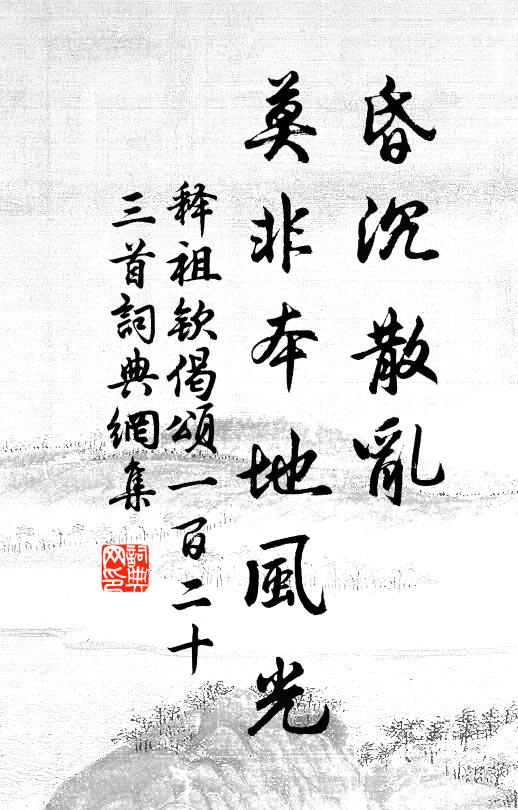 昏沉散亂
莫非本地風光
释祖钦偈頌一百二十
三首詞典網集
詞典
网印